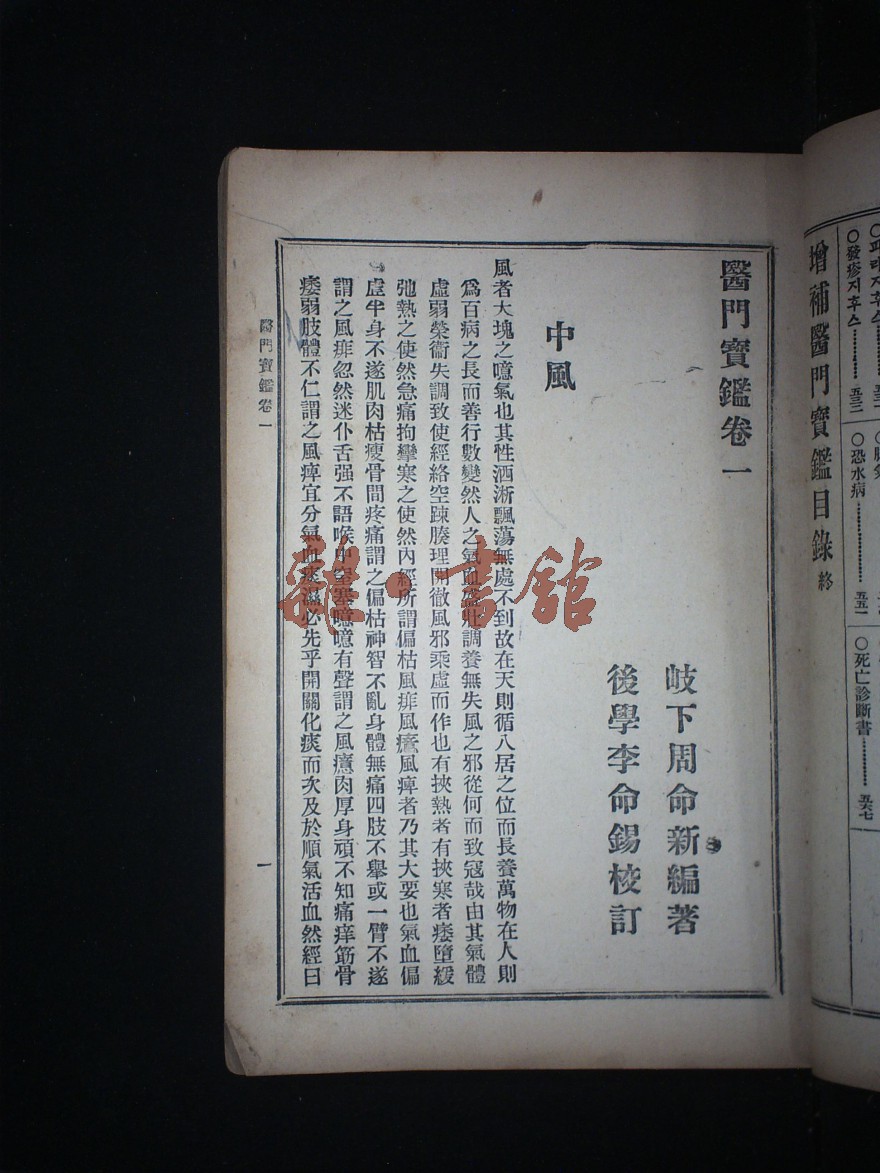 增補醫門寶鑑目錄 終
○發疹지후스…………五三二
○恐水病…………五五一
○死亡診斷書…………五六七
醫門寶鑑卷一
岐下周命新編著
後學李命錫校訂
中風
風者大塊之噫氣也其性洒淅飄蕩無處不到故在天則循八居之位而長養萬物在人則
爲百病之長而善行數變然人之氣血盛壯調養無失風之邪從何而致寇哉由其氣體
虛弱榮衞失調致使經絡空踈腠理開徹風邪乘虛而作也有挾熱者有挾寒者痿墮緩
弛熱之使然急痛拘攣寒之使然內經所謂偏枯風痱風癔風痺者乃其大要也氣血偏
虛半身不遂肌肉枯瘦骨間疼痛謂之偏枯神智不亂身體無痛四肢不擧或一臂不遂
謂之風痱忽然迷仆舌强不語喉中窒塞噫噫有聲謂之風癔肉厚身頑不知痛痒筋骨
痿弱肢體不仁謂之風痺宜分氣血痰濕必先乎開關化痰而次及於順氣活血然經曰
醫門寶鑑卷一
一
雜·書館